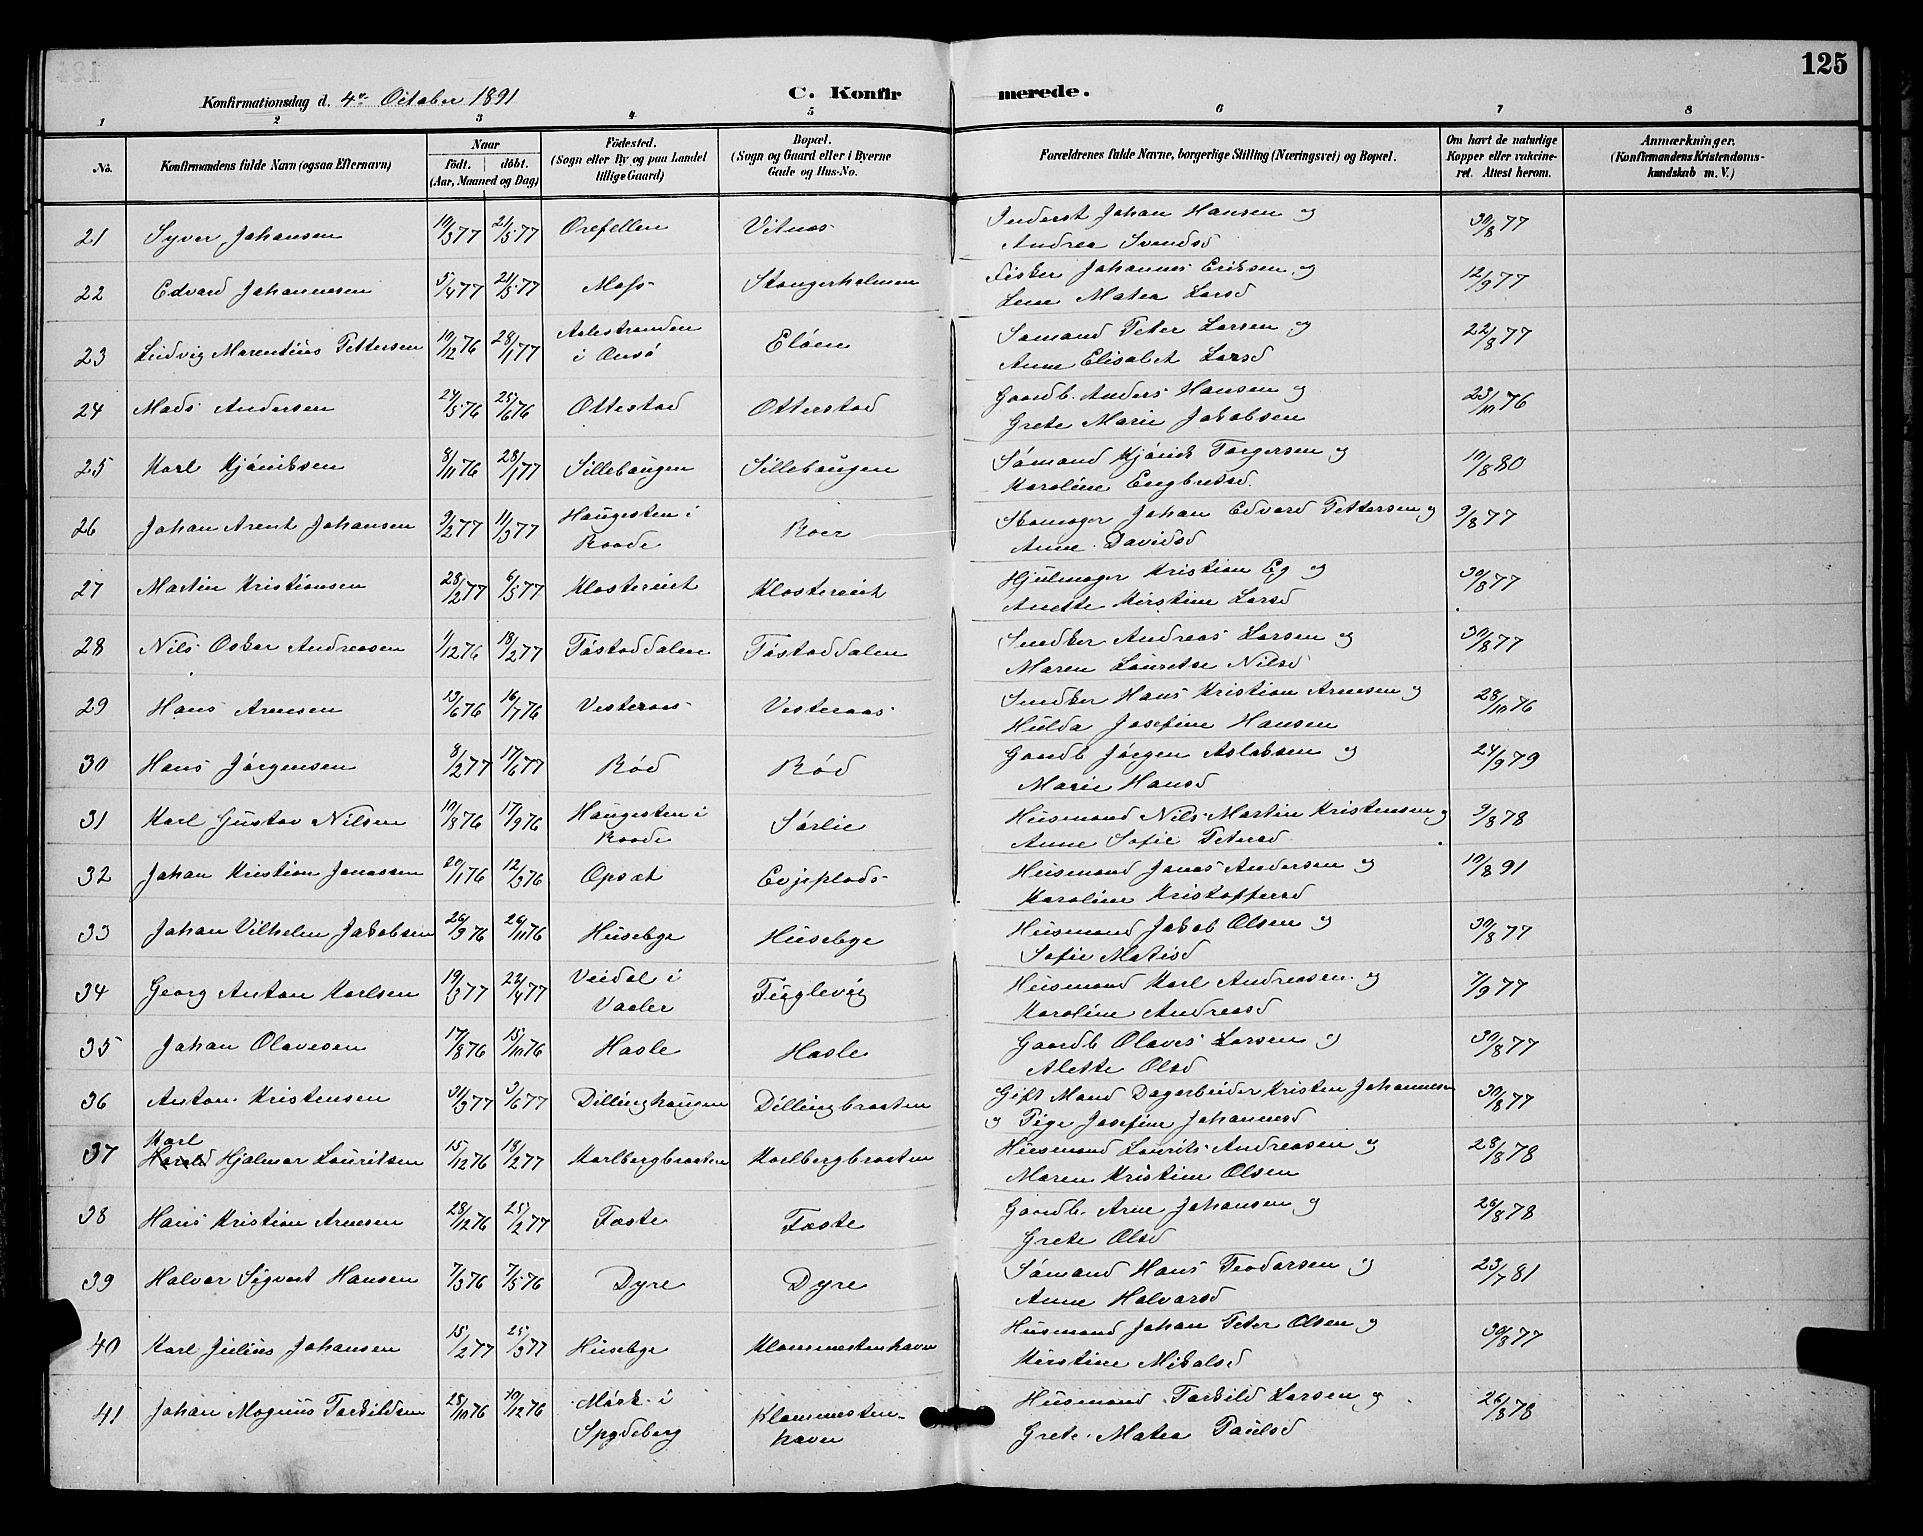 125
Konfirmationsdag d. 4de October 1891 C. Konfirmerede.
1 2 3 4 5 6 7 8
No. Konfirmandens fulde Navn (ogsaa Efternavn) Naar födt. döbt. (Aar, Maaned og Dag) Födested. (Sogn eller By og paa Landet tillige Gaard) Bopæl. (Sogn og Gaard eller i Byerne Gade og Hus-No. Forældrenes fulde Navne, borgerlige Stilling (Næringsvei) og Bopæl. Om havt de naturlige Kopper eller vakcineret. Attest herom. Anmærkninger. (Konfirmandens Kristendomskundskab m. V.)
21 Syver Johansen 10/3 77 21/5 77 Orefellen Vitnes Inderst Johan Hansen og 30/8 77
Andrea Svendsd
22 Edvard Johannesen 5/4 77 21/5 77 Moss Stangerholmen Fisker Johannes Eriksen og 12/9 77
Lene Matea Larsd
23 Ludvig Marentius Pettersen 10/12 76 28/1 77 Aalestranden i Onsö Elöen Sömand Peter Larsen og 22/8 77
Anne Elisabet Larsd
24 Mads Andersen 24/5 76 25/6 76 Ottestad Otterstad Gaardb. Anders Hansen og 23/10 76
Grete Marie Jakobsen
25 Karl Kjöniksen 8/11 76 28/1 77 Sillebaugen Sillebaugen Sömand Kjönik Torgersen og 10/8 80
Karoline Engbretsd.
26 Johan Arent Johansen 9/2 77 11/3 77 Haugesten i Raade Roer Skomager Johan Edvard Pettersen og 9/8 77
Anne Davidsd
27 Martin Kristiansen 28/2 77 6/5 77 Klostereiet Klostereiet Hjulmager Kristian Eg og 30/8 77
Anette Kirstine Larsd
28 Nils Oskar Andreasen 1/12 76 18/2 77 Töstaddalen Töstaddalen Snedker Andreas Larsen og 30/8 77
Maren Louretse Nilsd
29 Hans Arnesen 13/6 76 16/7 76 Vesteraas Vesteraas Snedker Hans Kristian Arnesen og 28/10 76
Hulda Josefine Hansen
30 Hans Jörgensen 8/2 77 17/6 77 Röd Röd Gaardb Jörgen Aslaksen og 24/9 79
Marie Hansd
31 Karl Gustav Nilsen 10/8 76 17/9 76 Haugesten i Raade Sörlie Husmand Nils Martin Kristensen og 9/8 78
Anne Sofie Petersd
32 Johan Kristian Jonassen 20/1 76 12/3 76 Opsæt Evjeplads Husmand Jonas Andersen og 10/8 91
Karoline Kristoffersd
33 Johan Vilhelm Jakobsen 26/9 76 26/11 76 Husebye Husebye Husmand Jakob Olsen og 30/8 77
Sofie Matisd
34 Georg Anton Karlsen 19/3 77 22/4 77 Veidal i Vaaler Fuglevig Husmand Karl Andreasen og 7/9 77
Karoline Andreasd
35 Johan Olavesen 17/8 76 15/10 76 Hasle Hasle Gaardb Olaves Larsen og 30/8 77
Alette Olsd
36 Anton Kristensen 31/3 77 3/6 77 Dillinghaugen Dillingbraaten Gift Mand Dagarbeider Kristen Johannesen 30/8 77
og Pige Josefine Johannesd
37 Karl Harald Hjalmar Lauritsen 15/12 76 18/2 77 Karlbergbraaten Karlbergbraaten Husmand Laurits Andreasen og 28/8 78
Maren Kristine Olsen
38 Hans Kristian Arnesen 28/12 76 25/2 77 Feste Feste Gaardb. Arne Johansen og 26/8 78
Grete Olsd
39 Halvor Sigvart Hansen 7/3 76 7/5 76 Dyre Dyre Sömand Hans Teodorsen og 23/7 81
Anne Halvorsd
40 Karl Julius Johansen 15/2 77 25/3 77 Husebye Klommestenhaven Husmand Johan Peter Olsen og 30/8 77
Kirstine Mikalsd
41 Johan Magnus Torkildsen 28/10 76 10/12 76 Mörk i Spydeberg Klommestenhaven Husmand Torkild Larsen og 26/8 78
Grete Matea Paulsd